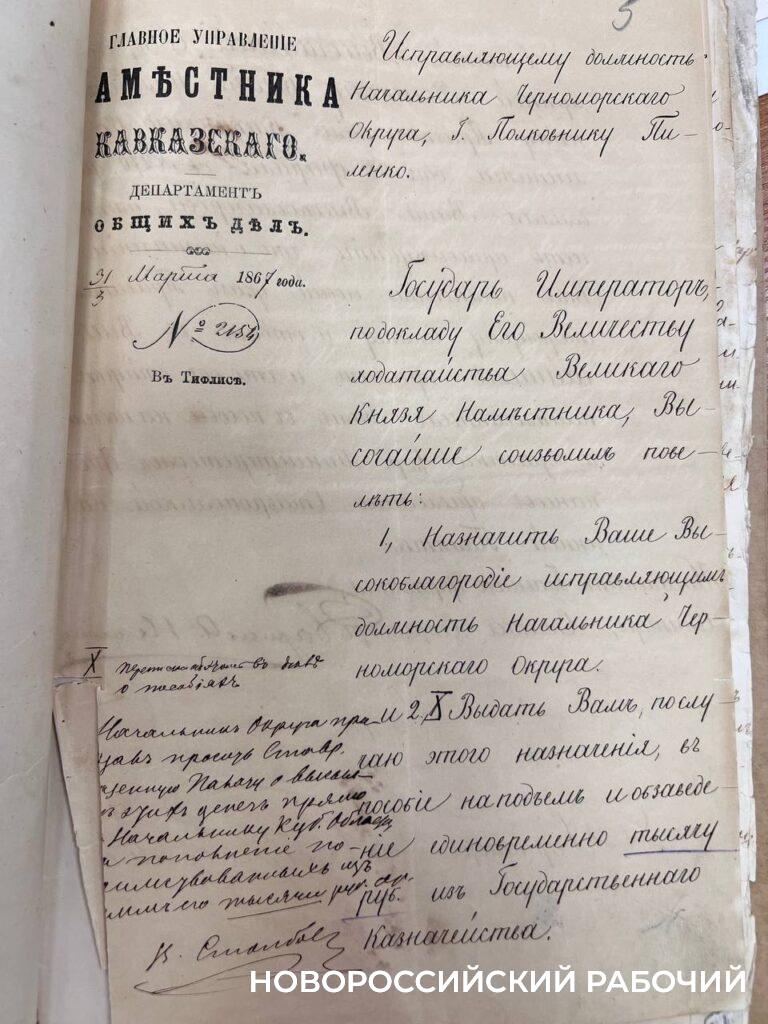 5
ГЛАВНОЕ УПРАВЛЕНІЕ
АМѢСТНИКА
КАВКАЗСКАГО.
ДЕПАРТАМЕНТЪ
ОБЩИХЪ ДѢЛЪ.
31/3 Марта 1867 года.
№ 2154
Въ Тифлисѣ.
Исправляющему должность
Начальника Черноморскаго
Округа, Г. Полковнику Пи-
ленко.
Государь Императоръ,
по докладу Его Величеству
ходатайства Великаго
Князя Намѣстника, Вы-
сочайше соизволилъ пове-
лѣть:
1, Назначить Ваше Вы-
сокоблагородіе исправляющимъ
должность Начальника Чер-
номорскаго Округа.
и 2, X Выдать Вамъ, по слу-
чаю этого назначенія, въ
пособіе на подъемъ и обзаведе-
ніе единовременно тысячу
руб. изъ Государственнаго
Казначейства.
X
о пособіяхъ
Начальникъ Округа
проситъ
о
этихъ денегъ прямо
Начальнику Куб. Области
пополненіе по-
изъ
тысячи руб.
НОВОРОССИЙСКИЙ РАБОЧИЙ